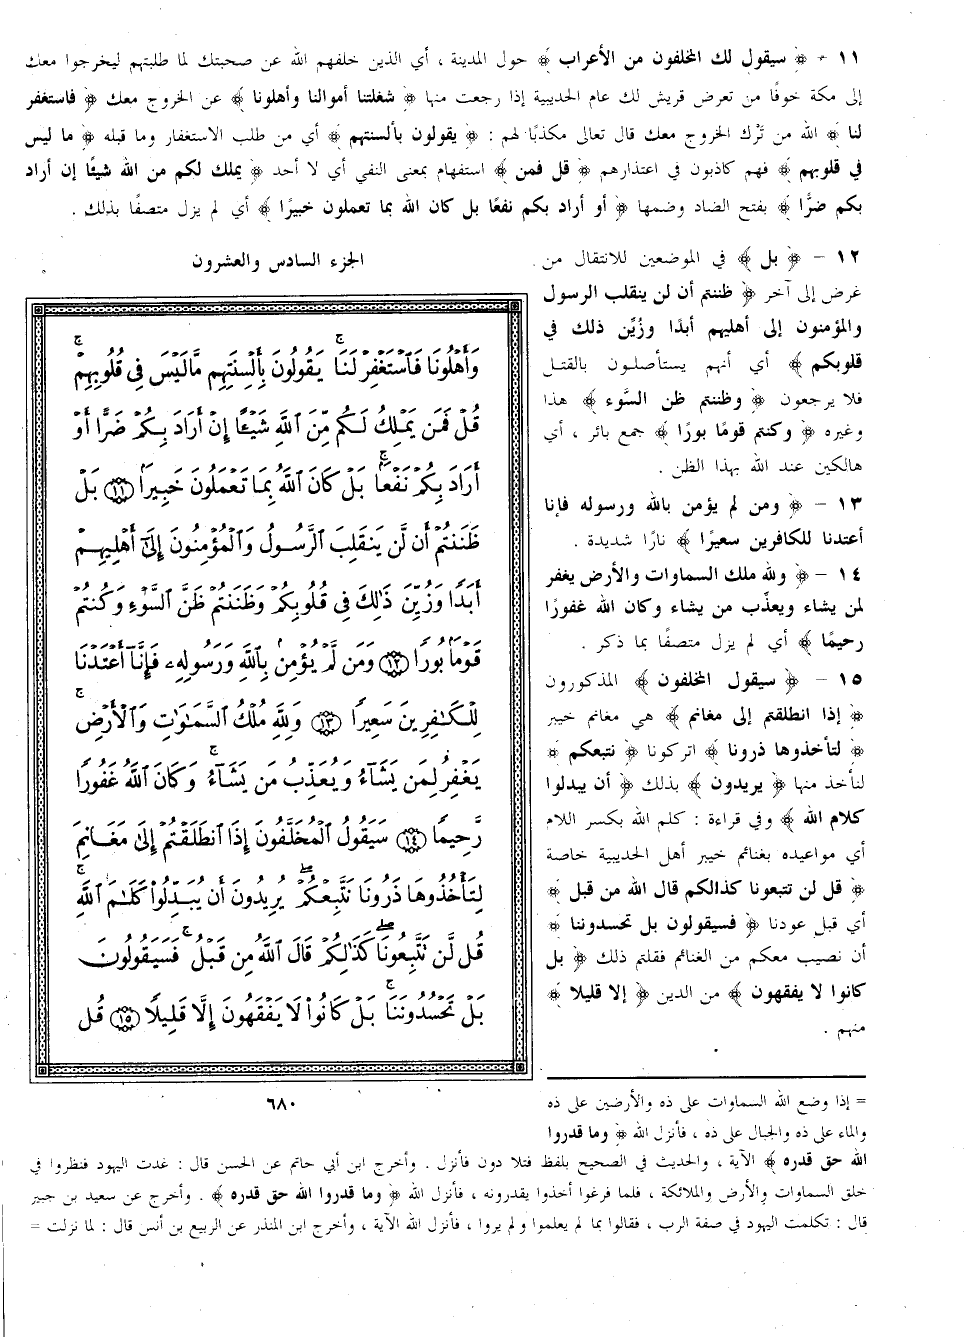 ١١ - ﴿ سيقول لك المخلفون من الأعراب ﴾ حول المدينة ، أي الذين خلفهم الله عن صحبتك لما طلبتهم ليخرجوا معك
إلى مكة خوفًا من تعرض قريش لك عام الحديبية إذا رجعت منها ﴿ شغلتنا أموالنا وأهلونا ﴾ عن الخروج معك ﴿ فاستغفر
لنا ﴾ الله من تَرْك الخروج معك قال تعالى مكذبًا لهم : ﴿ يقولون بألسنتهم ﴾ أي من طلب الاستغفار وما قبله ﴿ ما ليس
في قلوبهم ﴾ فهم كاذبون في اعتذارهم ﴿ قل فمن ﴾ استفهام بمعنى النفي أي لا أحد ﴿ يملك لكم من الله شيئًا إن أراد
بكم ضرًّا ﴾ بفتح الضاد وضمها ﴿ أو أراد بكم نفعًا بل كان الله بما تعملون خبيرًا ﴾ أي لم يزل متصفًا بذلك .
١٢ - ﴿ بل ﴾ في الموضعين للانتقال من
غرض إلى آخر ﴿ ظننتم أن لن ينقلب الرسول
والمؤمنون إلى أهليهم أبدًا وزُيِّن ذلك في
قلوبكم ﴾ أي أنهم يستأصلون بالقتل
فلا يرجعون ﴿ وظننتم ظن السَّوء ﴾ هذا
وغيره ﴿ وكنتم قومًا بورًا ﴾ جمع بائر ، أي
هالكين عند الله بهذا الظن .
١٣ - ﴿ ومن لم يؤمن بالله ورسوله فإنا
أعتدنا للكافرين سعيرًا ﴾ نارًا شديدة .
١٤ - ﴿ ولله ملك السماوات والأرض يغفر
لمن يشاء ويعذّب من يشاء وكان الله غفورًا
رحيمًا ﴾ أي لم يزل متصفًا بما ذكر .
١٥ - ﴿ سيقول المخلفون ﴾ المذكورون
﴿ إذا انطلقتم إلى مغانم ﴾ هي مغانم خيبر
﴿ لتأخذوها ذرونا ﴾ اتركونا ﴿ نتبعكم ﴾
لنأخذ منها ﴿ يريدون ﴾ بذلك ﴿ أن يبدلوا
كلام الله ﴾ وفي قراءة : كلم الله بكسر اللام
أي مواعيده بغنائم خيبر أهل الحديبية خاصة
﴿ قل لن تتبعونا كذالكم قال الله من قبل ﴾
أي قبل عودنا ﴿ فسيقولون بل تحسدوننا ﴾
أن نصيب معكم من الغنائم فقلتم ذلك ﴿ بل
كانوا لا يفقهون ﴾ من الدين ﴿ إلا قليلا ﴾
منهم .
الجزء السادس والعشرون
وَأَهْلُونَا فَٱسْتَغْفِرْ لَنَا ۚ يَقُولُونَ بِأَلْسِنَتِهِم مَّا لَيْسَ فِى قُلُوبِهِمْ ۚ
قُلْ فَمَن يَمْلِكُ لَكُم مِّنَ ٱللَّهِ شَيْـًٔا إِنْ أَرَادَ بِكُمْ ضَرًّا أَوْ
أَرَادَ بِكُمْ نَفْعًۢا ۚ بَلْ كَانَ ٱللَّهُ بِمَا تَعْمَلُونَ خَبِيرًۢا ﴿١١﴾ بَلْ
ظَنَنتُمْ أَن لَّن يَنقَلِبَ ٱلرَّسُولُ وَٱلْمُؤْمِنُونَ إِلَىٰٓ أَهْلِيهِمْ
أَبَدًا وَزُيِّنَ ذَٰلِكَ فِى قُلُوبِكُمْ وَظَنَنتُمْ ظَنَّ ٱلسَّوْءِ وَكُنتُمْ
قَوْمًۢا بُورًا ﴿١٢﴾ وَمَن لَّمْ يُؤْمِنۢ بِٱللَّهِ وَرَسُولِهِۦ فَإِنَّآ أَعْتَدْنَا
لِلْكَٰفِرِينَ سَعِيرًا ﴿١٣﴾ وَلِلَّهِ مُلْكُ ٱلسَّمَٰوَٰتِ وَٱلْأَرْضِ ۚ
يَغْفِرُ لِمَن يَشَآءُ وَيُعَذِّبُ مَن يَشَآءُ ۚ وَكَانَ ٱللَّهُ غَفُورًا
رَّحِيمًا ﴿١٤﴾ سَيَقُولُ ٱلْمُخَلَّفُونَ إِذَا ٱنطَلَقْتُمْ إِلَىٰ مَغَانِمَ
لِتَأْخُذُوهَا ذَرُونَا نَتَّبِعْكُمْ ۖ يُرِيدُونَ أَن يُبَدِّلُوا۟ كَلَٰمَ ٱللَّهِ ۚ
قُل لَّن تَتَّبِعُونَا كَذَٰلِكُمْ قَالَ ٱللَّهُ مِن قَبْلُ ۖ فَسَيَقُولُونَ
بَلْ تَحْسُدُونَنَا ۚ بَلْ كَانُوا۟ لَا يَفْقَهُونَ إِلَّا قَلِيلًا ﴿١٥﴾ قُل
٦٨٠
= إذا وضع الله السماوات على ذه والأرضين على ذه
والماء على ذه والجبال على ذه ، فأنزل الله ﴿ وما قدروا
الله حق قدره ﴾ الآية ، والحديث في الصحيح بلفظ فتلا دون فأنزل . وأخرج ابن أبي حاتم عن الحسن قال : غدت اليهود فنظروا في
خلق السماوات والأرض والملائكة ، فلما فرغوا أخذوا يقدرونه ، فأنزل الله ﴿ وما قدروا الله حق قدره ﴾ . وأخرج عن سعيد بن جبير
قال : تكلمت اليهود في صفة الرب ، فقالوا بما لم يعلموا ولم يروا ، فأنزل الله الآية ، وأخرج ابن المنذر عن الربيع بن أنس قال : لما نزلت =